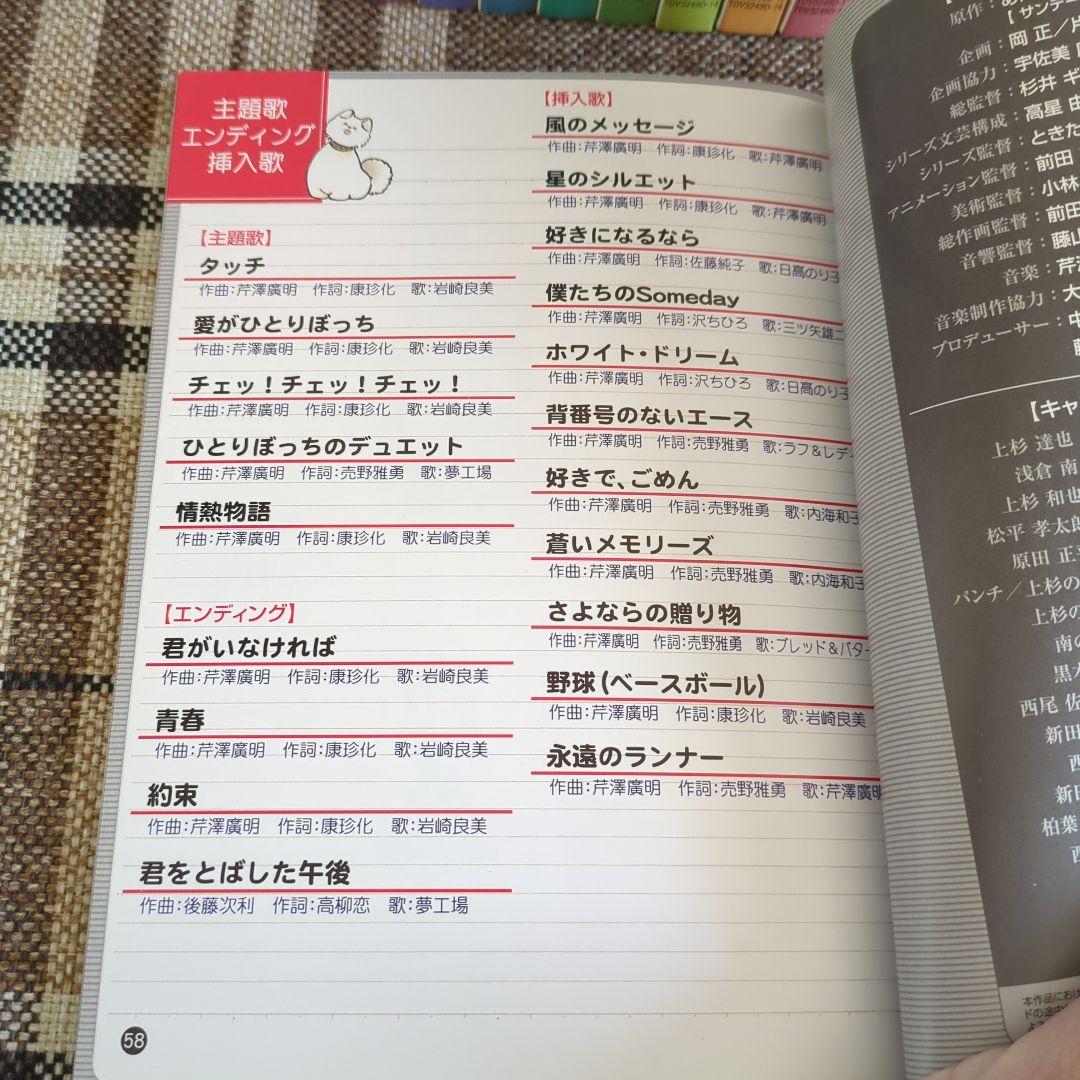 TDV3249D-14
TDV3249D-16
主題歌
エンディング
挿入歌
【主題歌】
タッチ
作曲:芹澤廣明 作詞:康珍化 歌:岩崎良美
愛がひとりぼっち
作曲:芹澤廣明 作詞:康珍化 歌:岩崎良美
チェッ!チェッ!チェッ!
作曲:芹澤廣明 作詞:康珍化 歌:岩崎良美
ひとりぼっちのデュエット
作曲:芹澤廣明 作詞:売野雅勇 歌:夢工場
情熱物語
作曲:芹澤廣明 作詞:康珍化 歌:岩崎良美
【エンディング】
君がいなければ
作曲:芹澤廣明 作詞:康珍化 歌:岩崎良美
青春
作曲:芹澤廣明 作詞:康珍化 歌:岩崎良美
約束
作曲:芹澤廣明 作詞:康珍化 歌:岩崎良美
君をとばした午後
作曲:後藤次利 作詞:高柳恋 歌:夢工場
【挿入歌】
風のメッセージ
作曲:芹澤廣明 作詞:康珍化 歌:芹澤廣明
星のシルエット
作曲:芹澤廣明 作詞:康珍化 歌:芹澤廣明
好きになるなら
作曲:芹澤廣明 作詞:佐藤純子 歌:日髙のり子
僕たちのSomeday
作曲:芹澤廣明 作詞:沢ちひろ 歌:三ツ矢雄二
ホワイト・ドリーム
作曲:芹澤廣明 作詞:沢ちひろ 歌:日髙のり子
背番号のないエース
作曲:芹澤廣明 作詞:売野雅勇 歌:ラフ&レディ
好きで、ごめん
作曲:芹澤廣明 作詞:売野雅勇 歌:内海和子
蒼いメモリーズ
作曲:芹澤廣明 作詞:売野雅勇 歌:内海和子
さよならの贈り物
作曲:芹澤廣明 作詞:売野雅勇 歌:ブレッド&バター
野球(ベースボール)
作曲:芹澤廣明 作詞:康珍化 歌:岩崎良美
永遠のランナー
作曲:芹澤廣明 作詞:売野雅勇 歌:芹澤廣明
58
原作:あ
【サンデー
企画:岡 正/片
企画協力:宇佐美
総監督:杉井 ギ
シリーズ文芸構成:高星 由
シリーズ監督:ときた
アニメーション監督:前田
美術監督:小林
総作画監督:前田
音響監督:藤山
音楽:芹澤
音楽制作協力:大
プロデューサー:中
藤
【キャ
上杉 達也
浅倉 南
上杉 和也
松平 孝太郎
原田 正平
パンチ/上杉の
上杉の
南の
黒木
西尾 佐
新田
西
新田
柏葉
西
本作品におけ
ドの途中